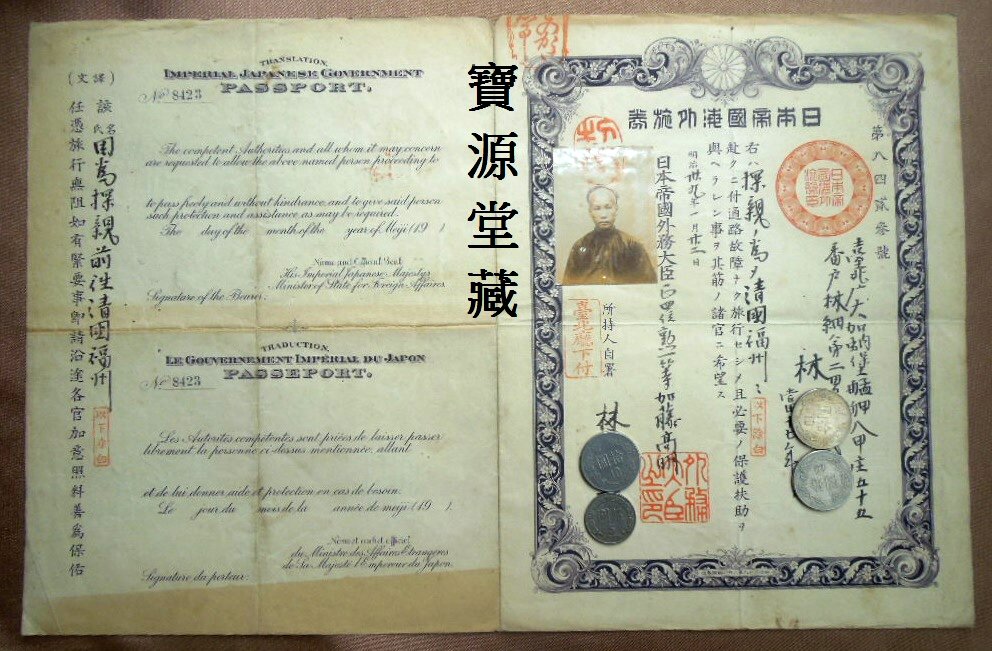 寶源堂藏
第八四貳參號
日本帝國海外旅券
大加蚋堡艋舺八甲庄五十五
番戶林
林
右ハ探親ノ爲メ清國福州ニ
赴クニ付通路故障ナク旅行セシメ且必要ノ保護扶助ヲ
與ヘラレン事ヲ其筋ノ諸官ニ希望ス
明治卅九年一月廿二日
日本帝國外務大臣正四位勲一等加藤高明
所持人自署
臺北廳下付
林
外務大臣之印
TRANSLATION.
IMPERIAL JAPANESE GOVERNMENT
PASSPORT.
No 8423
The competent Authorities and all whom it may concern
are requested to allow the above named person proceeding to
to pass freely and without hindrance, and to give said person
such protection and assistance as may be required.
The day of the month of the year of Meiji (19 ).
Name and Official Seal
His Imperial Japanese Majesty's
Minister of State for Foreign Affaires
Signature of the Bearer:
TRADUCTION.
LE GOUVERNEMENT IMPÉRIAL DU JAPON
PASSEPORT.
No 8423
Les Autorités compétentes sont priées de laisser passer
librement la personne ci-dessus mentionnée, allant
et de lui donner aide et protection en cas de besoin.
Le jour du mois de la année de meiji (19 ).
Nom et cachet officiel
du Ministre des Affaires Etrangeres
de Sa Majesté l'Empereur du Japon.
Signature du porteur:
(譯文)
該氏名因爲探親前往清國福州
任憑旅行無阻如有緊要事卽請沿途各官加意照料善爲保佑